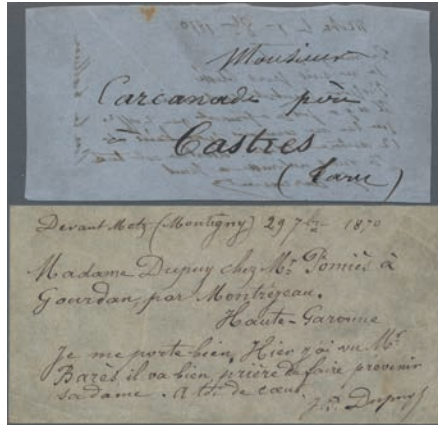 Monsieur
Carcanade père
à Castres
(Tarn)
Devant Metz (Montigny) 29 7bre 1870
Madame Dupuy chez Mr. Pomiès à
Gourdan, par Montréjeau.
Haute-Garonne
Je me porte bien, Hier j'ai vu Mr.
Barès il va bien, prière de faire prévenir
sa dame. A toi de cœur.
Dupuy